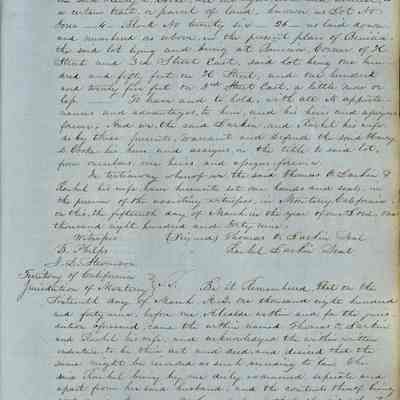 a certain tract or parcel of land, known as Lot No.
Four - 4 - Block No twenty six - 26 - as laid down
and numbered as above, in the present plan of
the said lot lying and being at Corner of K
Street and 3rd Street East, said lot being one hun-
dred and fifty feet on K Street, and one hundred
and twenty five feet on 3rd Street East, a little more or
less To have and to hold, with all its appurte-
nances and advantages, to him, and his heirs and assigns
forever. And we the said Larkin, and Rachel his wife
do by these presents, warrant and defend the said Henry
his heirs, and assigns, in the title to said lot,
from ourselves, our heirs and assigns forever.
In testimony whereof we the said Thomas O. Larkin &
Rachel his wife, have hereunto set our hands and seals, in
the presence of the assisting witnesses, in Monterey California
on this the fifteenth day of March in the year of our Lord one
thousand eight hundred and forty nine.
Witnesses (Signed) Thomas O. Larkin Seal
B. Phelps Rachel Larkin Seal
J. D. Stevenson
Territory of California
Jurisdiction of Monterey } Be it Remembered that on the
Sixteenth day of March A.D. one thousand eight hundred
and forty nine, before me Alcalde within and for the juris-
diction aforesaid, came the within named Thomas O. Larkin
and Rachel his wife, and acknowledged the within written
indenture, to be their act and deed, and desired that the
same might be recorded as such according to law. The
said Rachel being by me duly examined separate and
apart from her said husband, and the contents thereof being